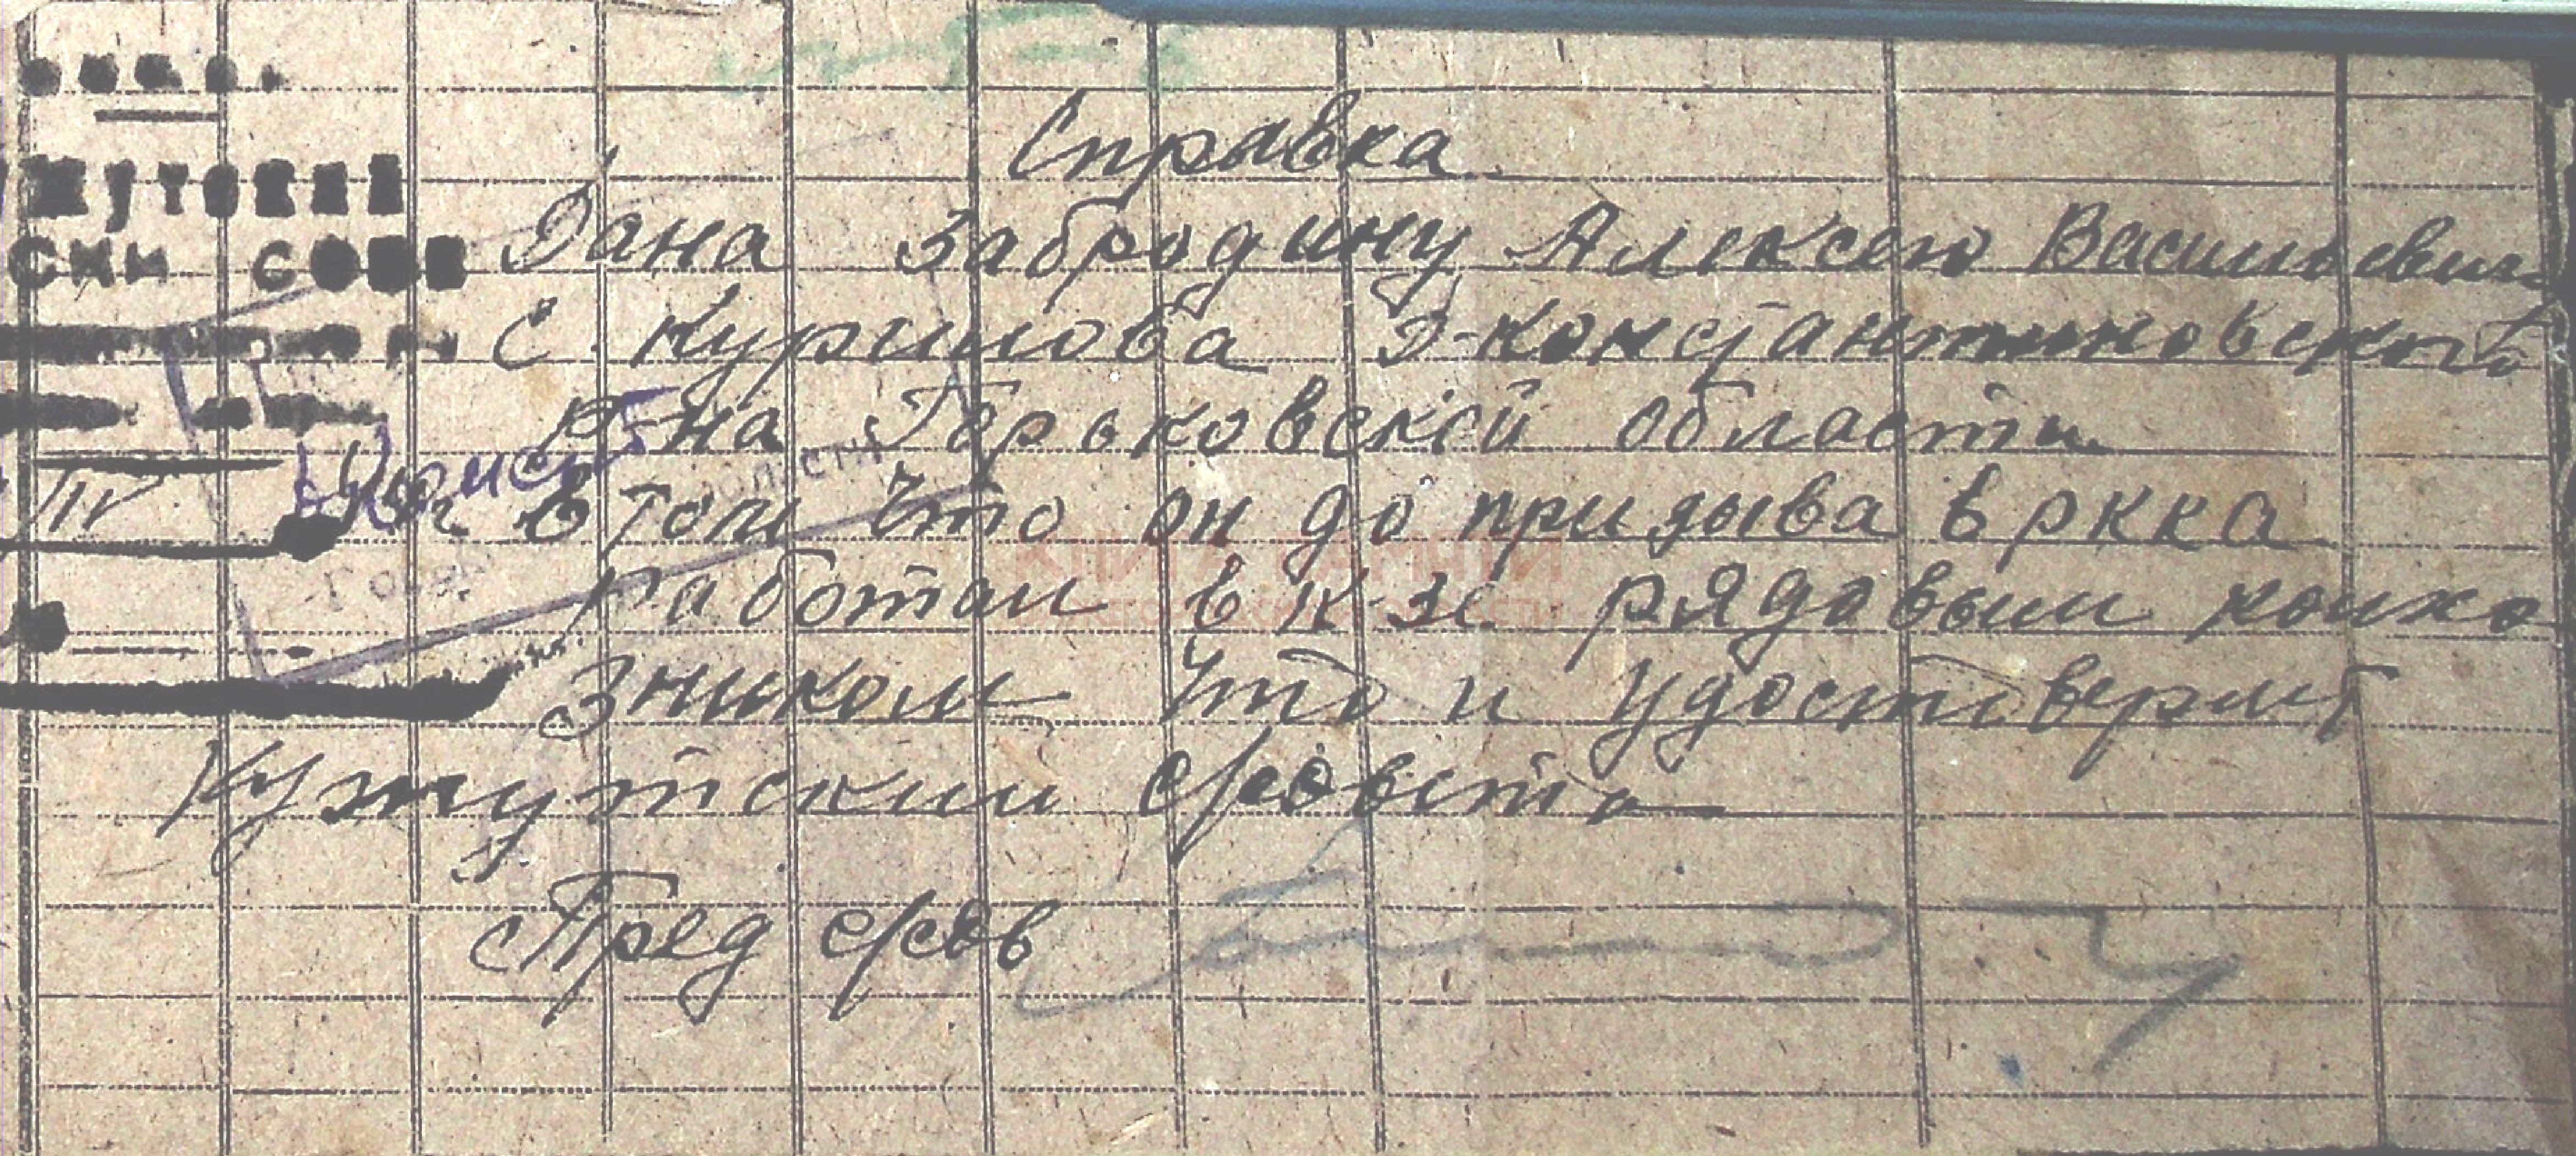 Справка
Дана Забродину Алексею Васильевич
С. Курилова Д-Константиновского
Р-на Горьковской области
в том что он до призыва в ркка
работал в к-зе рядовым колхо
зником что и удостоверяет
Кужутский с/совета
Пред с/сов
КНИГА ПАМЯТИ